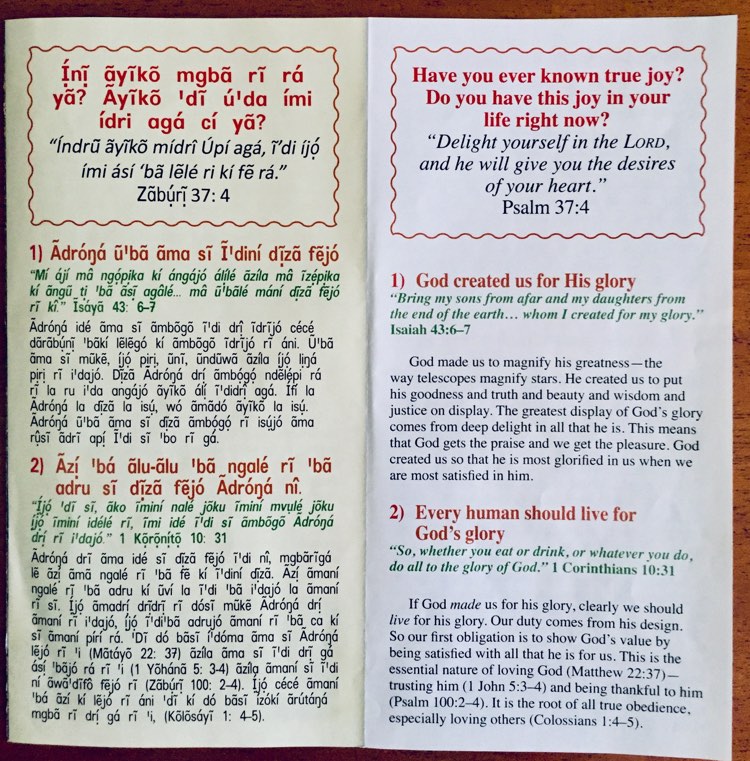 Ị́nị̃ ãyĩkõ mgbã rĩ rá
yã? Ãyĩkõ 'dĩ ú'da ími
ídri agá cí yã?
“Índrũ ãyĩkõ mídrî Úpí agá, ĩ'di íjọ́
ími ásí ‘bã lẽlé ri kí fẽ rá.”
Zãbụ́rị̃ 37: 4
1) Ãdróŋá ũ'bã ãma sĩ Ĩ'diní dị̃zã fẽjó
“Mí ájí mâ ngọ́pika kí ángájó álílé ãzíla mâ ĩzépika
kí ãngũ ṭị 'bã ãsị̃ agâlé... mâ ũ'bãlé mání dị̃zã fẽjó
rĩ kĩ.” Ĩsáyã 43: 6–7
Ãdróŋá idé ãma sĩ ãmbõgõ ĩ'di drị̂ ĩdrĩjó cécé
dãrãbụ́nị̃ 'bãkí lẽlẽgó kí ãmbõgõ ĩdrĩjó rĩ áni. Ũ'bã
ãma sĩ mũkẽ, íjọ́ pịrị, ũnĩ, ũndũwã ãzíla íjọ́ lịŋá
pịrị rĩ i'dajó. Dị̃zã Ãdróŋá drí ãmbọ́gọ́ ndẽlépi rá
rĩ la ru i'da angájó ãyĩkõ álị ĩ'didrị̂ agá. Ífí la
Ãdróŋá la dị̃zã la isụ́, wó ãmãdó ãyĩkõ la isụ́.
Ãdróŋá ũ'bã ãma sĩ dị̃zã ãmbọ́gọ́ rĩ isụ́jó ãma
rụ̃sĩ ãdrĩ apị́ Ĩ'di sĩ 'bo rĩ gá.
2) Ãzị́ 'bá ãlu-ãlu 'bã ngalé rĩ 'bã
adru sĩ dị̃zã fẽjó Ãdróŋá nî.
“Íjọ́ 'dĩ sĩ, ãko ĩminí nalé jõku ĩminí mvụlé jõku
íjọ́ ĩminí idélé rĩ, ĩmi idé ĩ'di sĩ ãmbõgõ Ãdróŋá
drị́ rĩ i'dajó.” 1 Kọ̃rọ̃nị́tọ̃ 10: 31
Ãdróŋá drĩ ãma idé sĩ dị̃zã fẽjó ĩ'di nî, mgbãrĩgá
lẽ ãzị́ ãmã ngalé rĩ 'bã fẽ kí ĩ'diní dị̃zã. Ãzị́ ãmaní
ngalé rĩ 'bã adru kí ũví la ĩ'di 'bã i'dajó la ãmaní
rĩ sĩ. Íjọ́ ãmadrí drĩdrĩ rĩ dósĩ mũkẽ Ãdróŋá drị́
ãmaní rĩ i'dajó, íjọ́ ĩ'di'bã adrujó ãmaní rĩ 'bã ca kí
sĩ ãmaní pírí rá. 'Dĩ dó bãsĩ í'dóma ãma sĩ Ãdróŋá
lẽjó rĩ 'i (Mãtáyõ 22: 37) ãzíla ãma sĩ ĩ'di drị̃ gá
ásị́ 'bãjó rá rĩ 'i (1 Yõhánã 5: 3-4) ãzíla ãmaní sĩ ĩ'di
ní ãwã'dĩfô fẽjó rĩ (Zãbụ́rị̃ 100: 2–4). Íjọ́ cécé ãmaní
'bá ãzí kí lẽjó rĩ áni 'dĩ kí dó bãsĩ ĩzókí ãrútáŋá
mgbã rĩ drị̃ gá rĩ 'i, (Kõlõsáyĩ 1: 4–5).
Have you ever known true joy?
Do you have this joy in your
life right now?
“Delight yourself in the LORD,
and he will give you the desires
of your heart.”
Psalm 37:4
1) God created us for His glory
“Bring my sons from afar and my daughters from
the end of the earth… whom I created for my glory.”
Isaiah 43:6–7
God made us to magnify his greatness—the
way telescopes magnify stars. He created us to put
his goodness and truth and beauty and wisdom and
justice on display. The greatest display of God’s glory
comes from deep delight in all that he is. This means
that God gets the praise and we get the pleasure. God
created us so that he is most glorified in us when we
are most satisfied in him.
2) Every human should live for
God’s glory
“So, whether you eat or drink, or whatever you do,
do all to the glory of God.” 1 Corinthians 10:31
If God made us for his glory, clearly we should
live for his glory. Our duty comes from his design.
So our first obligation is to show God’s value by
being satisfied with all that he is for us. This is the
essential nature of loving God (Matthew 22:37)—
trusting him (1 John 5:3–4) and being thankful to him
(Psalm 100:2–4). It is the root of all true obedience,
especially loving others (Colossians 1:4–5).